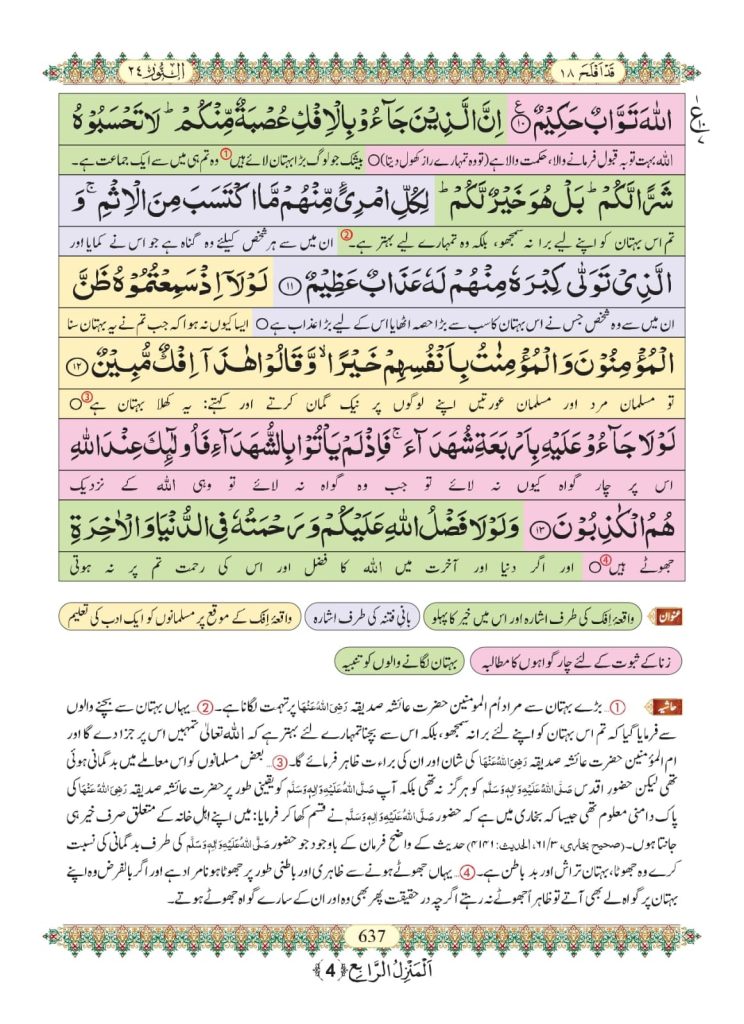 قَدْ اَفْلَحَ ١٨
اَلنُّوْر ٢٤
اللّٰهَ تَوَّابٌ حَكِیْمٌ ﴿۱۰﴾ اِنَّ الَّذِیْنَ جَآءُوْ بِالْاِفْكِ عُصْبَةٌ مِّنْكُمْ ؕ لَا تَحْسَبُوْهُ
اللہ بہت توبہ قبول فرمانے والا، حکمت والا ہے (تو وہ تمہارے راز کھول دیتا)○ بیشک جو لوگ بڑا بہتان لائے ہیں① وہ تم ہی میں سے ایک جماعت ہے۔
شَرًّا لَّكُمْ ؕ بَلْ هُوَ خَیْرٌ لَّكُمْ ؕ لِكُلِّ امْرِئٍ مِّنْهُمْ مَّا اكْتَسَبَ مِنَ الْاِثْمِ ۚ وَ
تم اس بہتان کو اپنے لیے برا نہ سمجھو، بلکہ وہ تمہارے لیے بہتر ہے۔② ان میں سے ہر شخص کیلئے وہ گناہ ہے جو اس نے کمایا اور
الَّذِیْ تَوَلّٰى كِبْرَهٗ مِنْهُمْ لَهٗ عَذَابٌ عَظِیْمٌ ﴿۱۱﴾ لَوْلَاۤ اِذْ سَمِعْتُمُوْهُ ظَنَّ
ان میں سے وہ شخص جس نے اس بہتان کا سب سے بڑا حصہ اٹھایا اس کے لیے بڑا عذاب ہے○ ایسا کیوں نہ ہوا کہ جب تم نے یہ بہتان سنا
الْمُؤْمِنُوْنَ وَ الْمُؤْمِنٰتُ بِاَنْفُسِهِمْ خَیْرًا ۙ وَّ قَالُوْا هٰذَاۤ اِفْكٌ مُّبِیْنٌ ﴿۱۲﴾
تو مسلمان مرد اور مسلمان عورتیں اپنے لوگوں پر نیک گمان کرتے اور کہتے: یہ کھلا بہتان ہے③○
لَوْلَا جَآءُوْ عَلَیْهِ بِاَرْبَعَةِ شُهَدَآءَ ۚ فَاِذْ لَمْ یَاْتُوْا بِالشُّهَدَآءِ فَاُولٰٓىِٕكَ عِنْدَ اللّٰهِ
اس پر چار گواہ کیوں نہ لائے تو جب وہ گواہ نہ لائے تو وہی اللہ کے نزدیک
هُمُ الْكٰذِبُوْنَ ﴿۱۳﴾ وَ لَوْلَا فَضْلُ اللّٰهِ عَلَیْكُمْ وَ رَحْمَتُهٗ فِی الدُّنْیَا وَ الْاٰخِرَةِ
جھوٹے ہیں④○ اور اگر دنیا اور آخرت میں اللہ کا فضل اور اس کی رحمت تم پر نہ ہوتی
عنوان واقعۂ اِفک کی طرف اشارہ اور اس میں خیر کا پہلو بانیِ فتنہ کی طرف اشارہ واقعۂ اِفک کے موقع پر مسلمانوں کو ایک ادب کی تعلیم
زنا کے ثبوت کے لئے چار گواہوں کا مطالبہ بہتان لگانے والوں کو تنبیہ
حاشیہ ①... بڑے بہتان سے مراد اُم المومنین حضرت عائشہ صدیقہ رَضِیَ اللہُ عَنْہَا پر تہمت لگانا ہے۔ ②... یہاں بہتان سے بچنے والوں
سے فرمایا گیا کہ تم اس بہتان کو اپنے لئے برا نہ سمجھو، بلکہ اس سے بچنا تمہارے لئے بہتر ہے کہ اللہ تعالٰی تمہیں اس پر جزا دے گا اور
ام المؤمنین حضرت عائشہ صدیقہ رَضِیَ اللہُ عَنْہَا کی شان اور ان کی براءت ظاہر فرمائے گا۔ ③... بعض مسلمانوں کو اس معاملے میں بدگمانی ہوئی
تھی لیکن حضور اقدس صَلَّی اللہُ عَلَیْہِ وَاٰلِہٖ وَسَلَّم کو ہرگز نہ تھی بلکہ آپ صَلَّی اللہُ عَلَیْہِ وَاٰلِہٖ وَسَلَّم کو یقینی طور پر حضرت عائشہ صدیقہ رَضِیَ اللہُ عَنْہَا کی
پاک دامنی معلوم تھی جیسا کہ بخاری میں ہے کہ حضور صَلَّی اللہُ عَلَیْہِ وَاٰلِہٖ وَسَلَّم نے قسم کھا کر فرمایا: میں اپنے اہل خانہ کے متعلق صرف خیر ہی
جانتا ہوں۔ (صحیح بخاری، ۳/ ۶۱، الحدیث: ۴۱۴۱) حدیث کے واضح فرمان کے باوجود جو حضور صَلَّی اللہُ عَلَیْہِ وَاٰلِہٖ وَسَلَّم کی طرف بدگمانی کی نسبت
کرے وہ جھوٹا، بہتان تراش اور بد باطن ہے۔ ④... یہاں جھوٹے ہونے سے ظاہری اور باطنی طور پر جھوٹا ہونا مراد ہے اور اگر بالفرض وہ اپنے
بہتان پر گواہ لے بھی آتے تو ظاہراً جھوٹے نہ رہتے اگرچہ در حقیقت پھر بھی وہ اور ان کے سارے گواہ جھوٹے ہوتے۔
637
اَلْمَنْزِلُ الرَّابِع ﴿4﴾